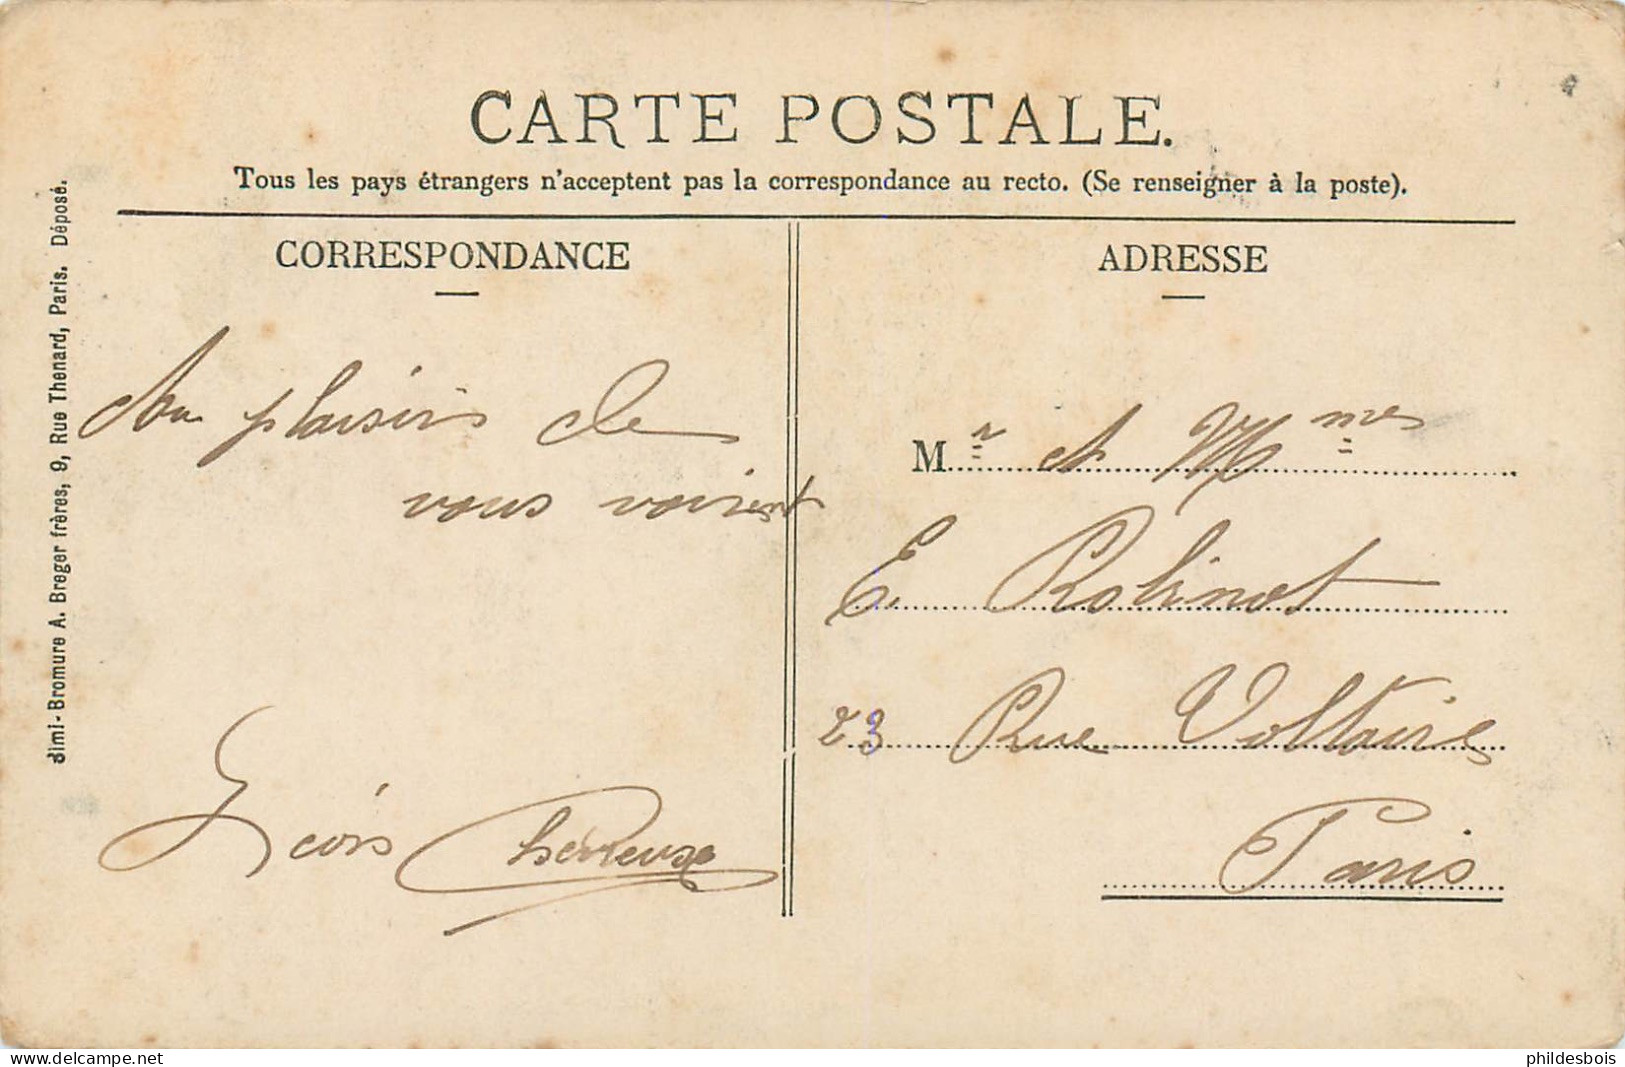 CARTE POSTALE.
Tous les pays étrangers n'acceptent pas la correspondance au recto. (Se renseigner à la poste).
CORRESPONDANCE
Au plaisir de
vous voir
ADRESSE
Mr et Mmes
E. Robinot
23 Rue Voltaire
Paris
Simi-Bromure A. Breger frères, 9, Rue Thenard, Paris. Déposé.
www.delcampe.net
phildesbois